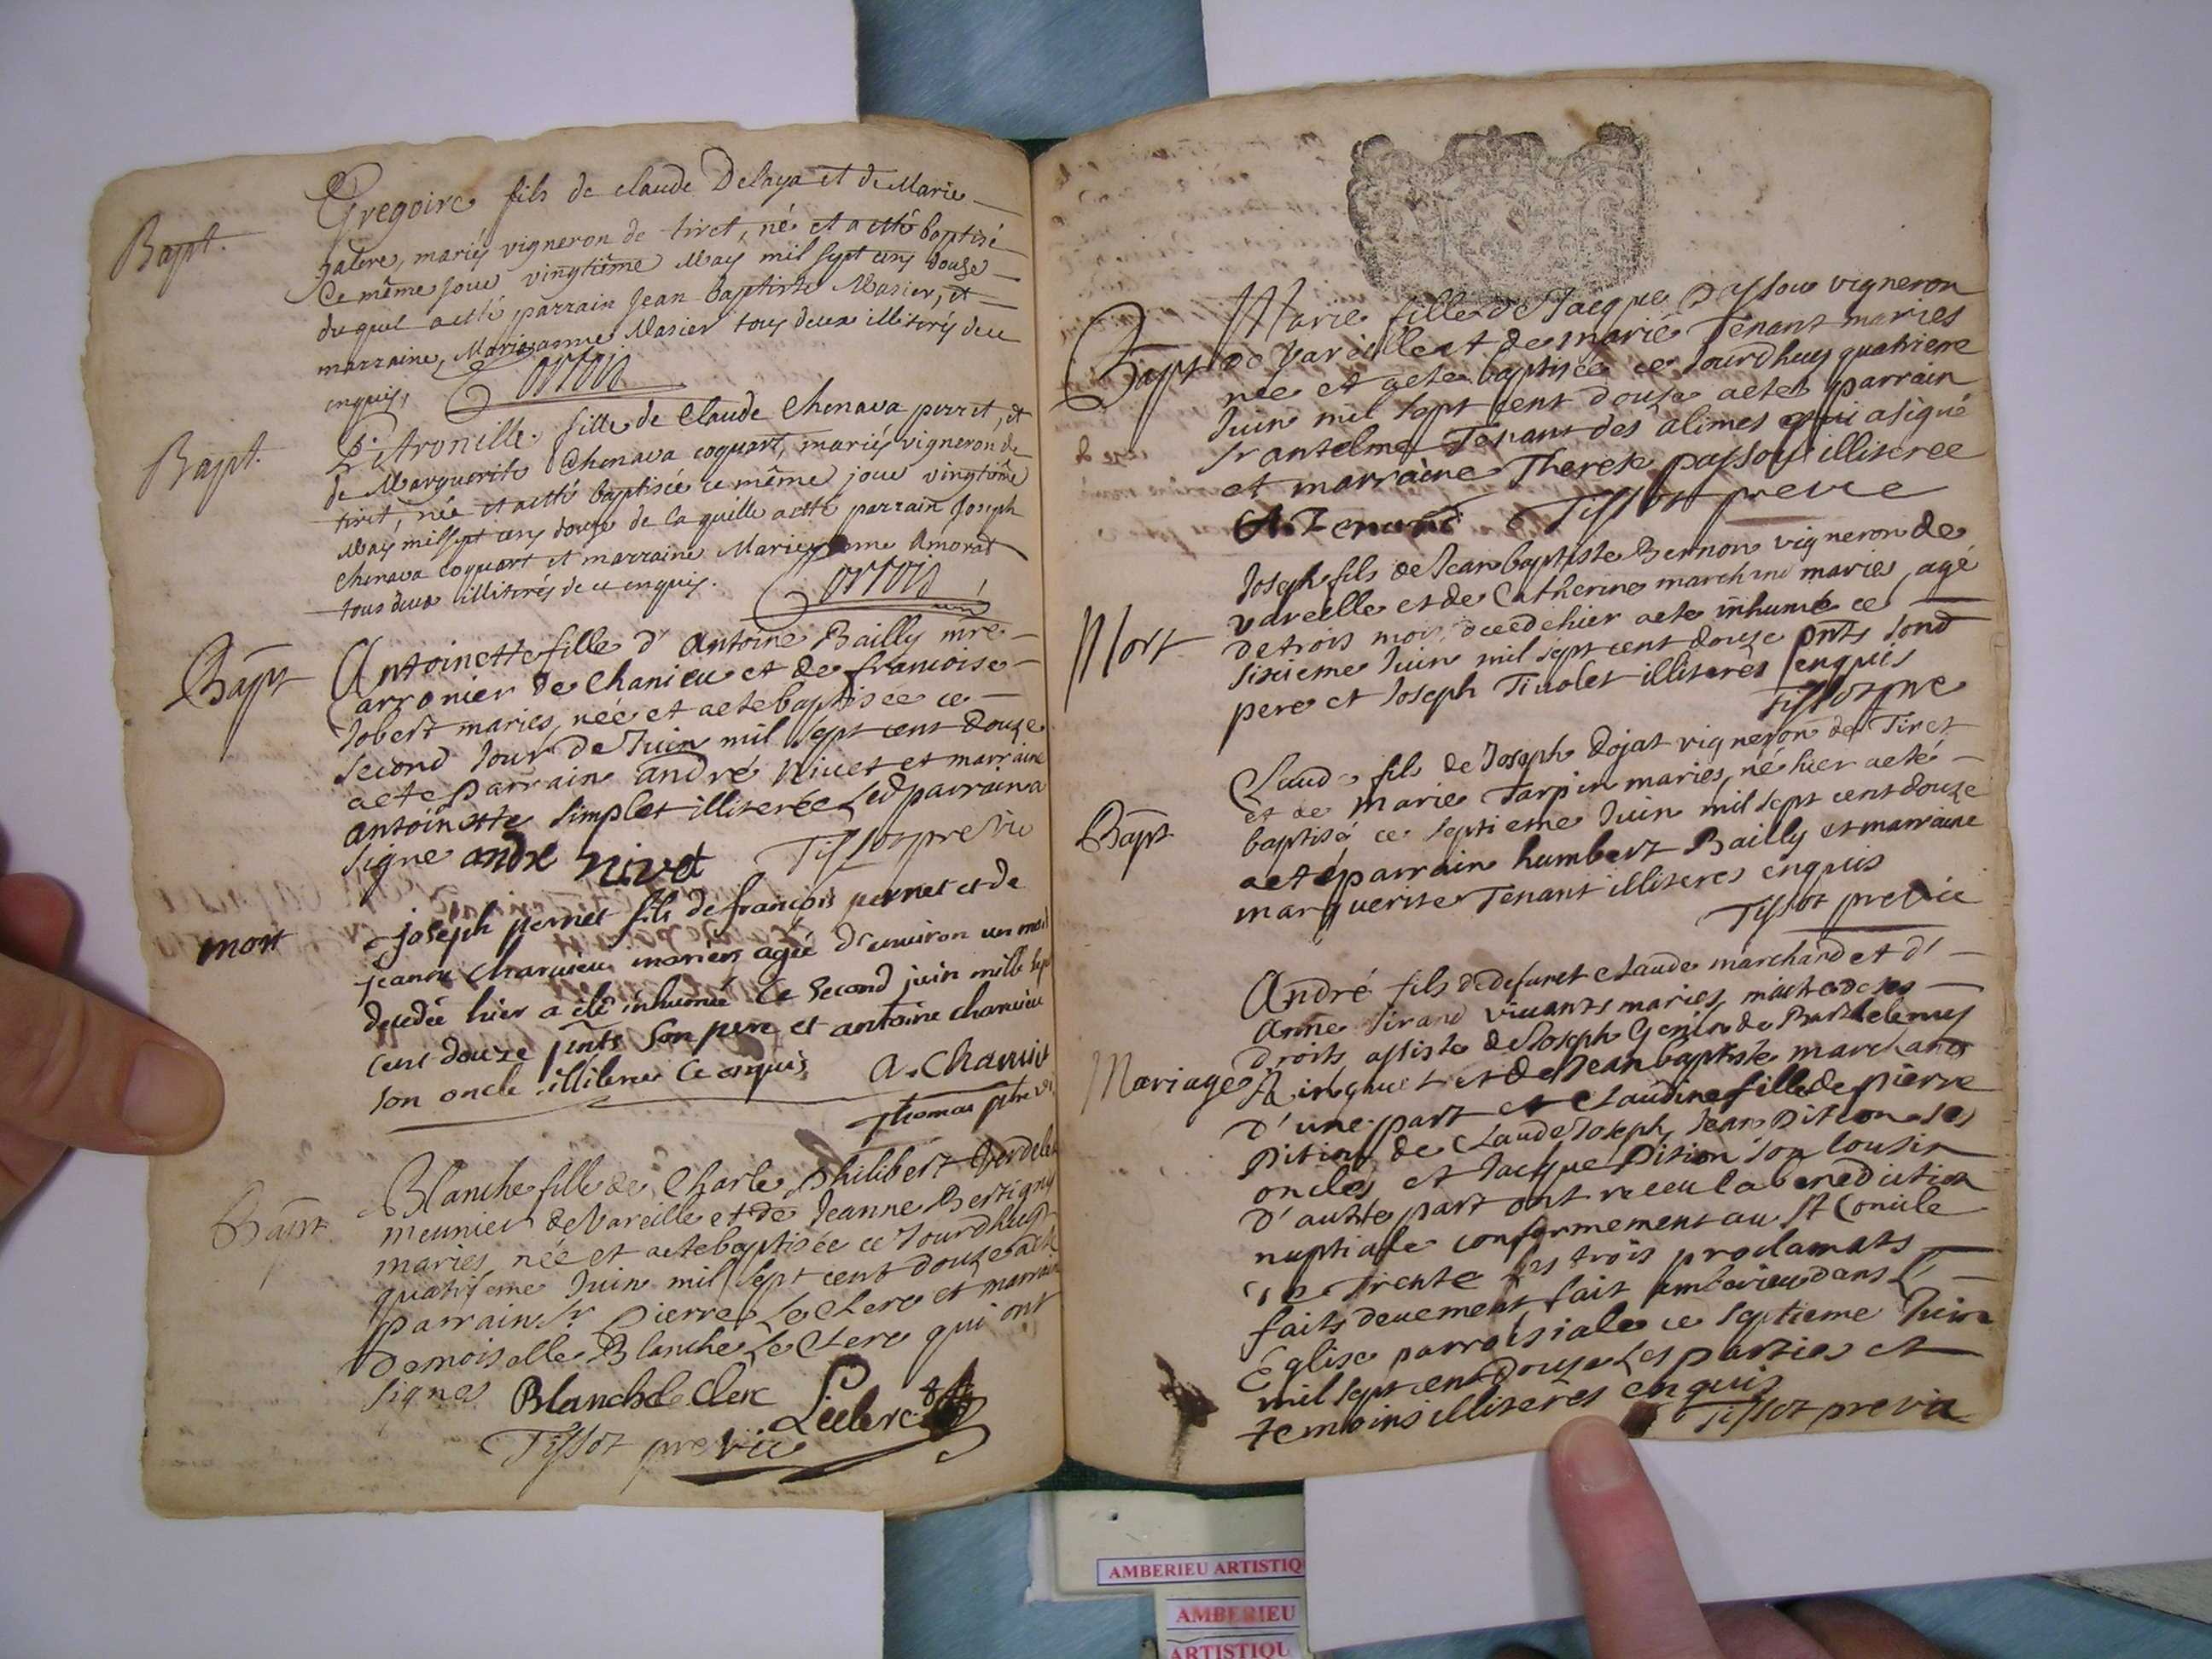 Bapt.
Gregoire fils de claude Delaya et de Marie
galere, mariés vigneron de tiret, né et a etté baptisé
Ce même jour vingtième May mil sept cens douze
duquel a etté parrain Jean baptiste Masier, et
marraine, Marieanne Masier tous deux illiterés de ce
enquis,
ortois
Bapt.
Petronille fille de Claude Chenava perret, et
de Marguerite Chenava coquart, mariés vigneron de
tiret, née et a etté baptisée ce même jour vingtième
May mil sept cens douze de laquelle a etté parrain Joseph
Chenava coquart et marraine Marieanne Amorat
tous deux illiterés de ce enquis.
ortois
Bapt
Antoinette fille d' Antoine Bailly mre
Carronier de Chanieu et de francoise
Jobert maries, née et a ete baptisée ce
second Jour de Juin mil sept cent douze
a ete parrain andré Nivet et marraine
antoinette simplet illiterée Led parrain a
signe andre nivet
Tissot pre vic
mort
joseph pernet fils de francois pernet et de
jeanne charvieu mariés agée d'environ un mois
decedée hier a été inhumé ce second juin mille sept
cent douze pnts son pere et antoine charvieu
son oncle illiteres ce enquis
a. Charvieu
Thomas ptre vi
Bapt
Blanche fille de Charle Philibert Verdelet
meunier de Vareille et de Jeanne Bertigny
maries née et a ete baptisée ce Jourdhuy
quatrieme Juin mil sept cent douze a ete
parrain Sr Pierre Le Clerc et marraine
Demoiselle Blanche Le Clerc qui ont
signes Blanche le Clerc
Leclerc
Tissot pre vic
Marie fille de Jacque passou vigneron
Bapt
de Vareille et de marie Tenant maries
née et a ete baptisée ce Jourdhuy quatrieme
Juin mil sept cent douze a ete parrain
Sr antelme Tenant des alimes qui a signé
et marraine Therese passou illiteree
A. Tenand
Tissot pre vic
Joseph fils de Jean baptiste Bernon vigneron de
Mort
vareille et de Catherine marchand maries, agé
de trois mois decedé hier a ete inhumé ce
sixieme Juin mil sept cent douze pnts sond
pere et Joseph Tivolet illiteres enquis
Tissot pre
Claude fils de Joseph Dojat vigneron de Tiret
et de marie Tarpin maries, né hier a eté
Bapt
baptisé ce septieme Juin mil sept cent douze
a eté parrain humbert Bailly et marraine
marguerite Tenant illiteres enquis
Tissot pre vic
André fils de defunct claude marchand et d'
Anne Sirand vivants maries, maitre de ses
droits assiste de Joseph Genin de Barthelemy
Mariage
Ringuet et de Jean baptiste marchand
d'une part et Claudine fille de pierre
Pition de Claude Joseph, Jean Pition ses
oncles et Jacque Pition son cousin
d'autre part ont receu la benediction
nuptiale conformement au St Concile
de Trente les trois proclamats
faits deuement fait amberieu dans l'
Eglise parroissiale ce septieme Juin
mil sept cent douze Les parties et
temoins illiteres enquis
Tissot pre vic
AMBERIEU ARTISTIQ
AMBERIEU
ARTISTIQU